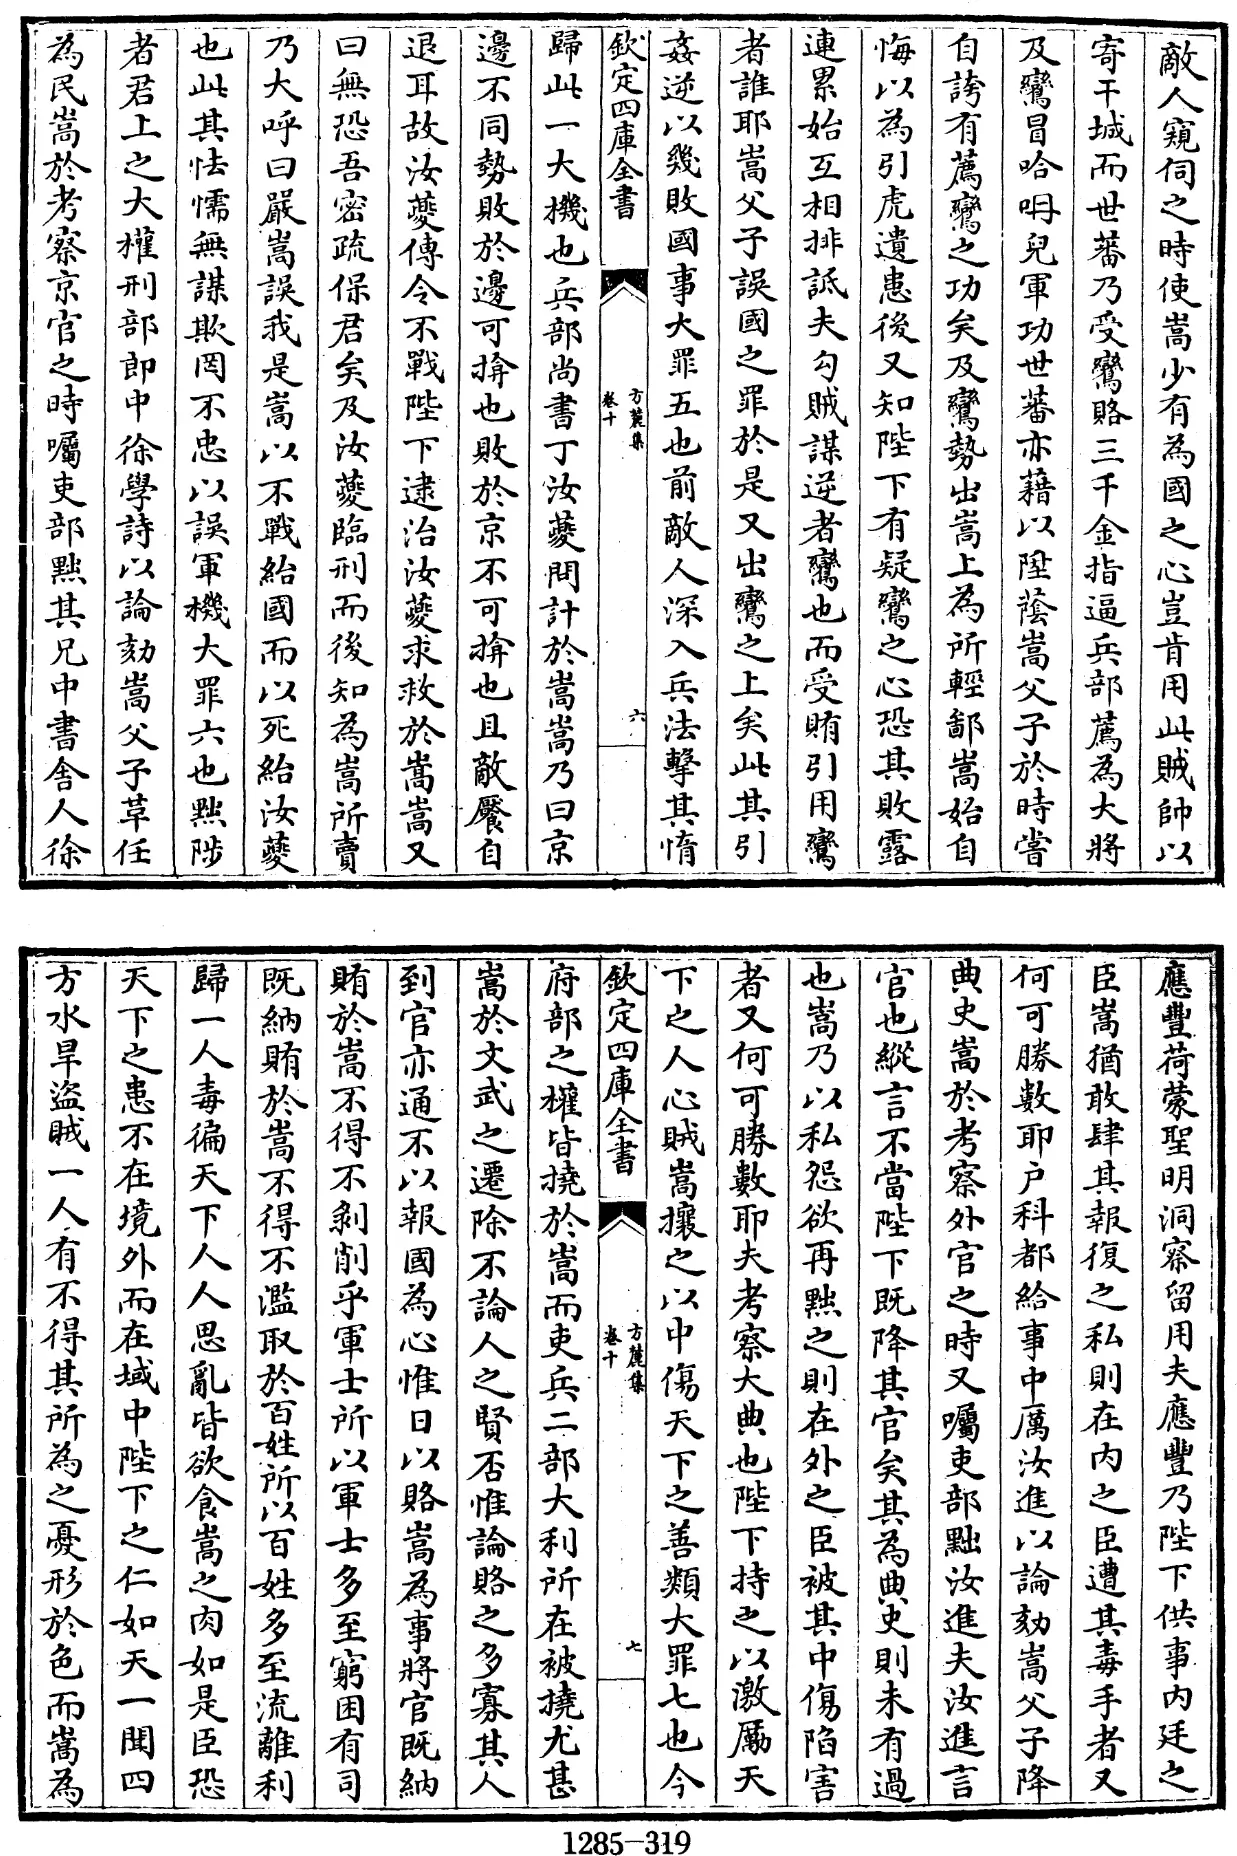 敵人窺伺之時使嵩少有為國之心豈肯用此賊帥以
寄干城而世蕃乃受鸞賂三千金指逼兵部薦為大將
及鸞冒哈哷兒軍功世蕃亦藉以陞蔭嵩父子於時嘗
自誇有薦鸞之功矣及鸞勢出嵩上為所輕鄙嵩始自
悔以為引虎遺患後又知陛下有疑鸞之心恐其敗露
連累始互相排詆夫勾賊謀逆者鸞也而受賄引用鸞
者誰耶嵩父子誤國之罪於是又出鸞之上矣此其引
姦逆以幾敗國事大罪五也前敵人深入兵法擊其惰
欽定四庫全書
方麓集
卷十
六
歸此一大機也兵部尚書丁汝夔問計於嵩嵩乃曰京
邊不同勢敗於邊可揜也敗於京不可揜也且敵饜自
退耳故汝夔傳令不戰陛下逮治汝夔求救於嵩嵩又
曰無恐吾密疏保君矣及汝夔臨刑而後知為嵩所賣
乃大呼曰嚴嵩誤我是嵩以不戰紿國而以死紿汝夔
也此其怯懦無謀欺罔不忠以誤軍機大罪六也黜陟
者君上之大權刑部郎中徐學詩以論劾嵩父子革任
為民嵩於考察京官之時囑吏部黜其兄中書舍人徐
應豐荷蒙聖明洞察留用夫應豐乃陛下供事內廷之
臣嵩猶敢肆其報復之私則在內之臣遭其毒手者又
何可勝數耶户科都給事中厲汝進以論劾嵩父子降
典史嵩於考察外官之時又囑吏部黜汝進夫汝進言
官也縱言不當陛下既降其官矣其為典史則未有過
也嵩乃以私怨欲再黜之則在外之臣被其中傷陷害
者又何可勝數耶夫考察大典也陛下持之以激勵天
下之人心賊嵩攘之以中傷天下之善類大罪七也今
欽定四庫全書
方麓集
卷十
七
府部之權皆撓於嵩而吏兵二部大利所在被撓尤甚
嵩於文武之遷除不論人之賢否惟論賂之多寡其人
到官亦通不以報國為心惟日以賂嵩為事將官既納
賄於嵩不得不剝削乎軍士所以軍士多至窮困有司
既納賄於嵩不得不濫取於百姓所以百姓多至流離利
歸一人毒徧天下人人思亂皆欲食嵩之肉如是臣恐
天下之患不在境外而在域中陛下之仁如天一聞四
方水旱盜賊一人有不得其所為之憂形於色而嵩為
1285-319